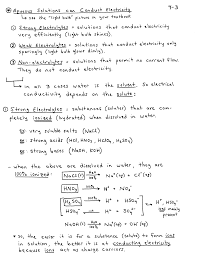 4-3
Aqueous Solutions can Conduct Electricity
(we use the "light bulb" picture in your textbook)
① Strong Electrolytes = solutions that conduct electricity
very efficiently (light bulb shines).
② Weak Electrolytes = solutions that conduct electricity only
sparingly (light bulb glows dimly).
③ Non-electrolytes = solutions that permit no current flow.
They do not conduct electricity.
in all 3 cases water is the solvent. So electrical
conductivity depends on the solute:
① Strong Electrolytes = substances (solutes) that are com-
pletely ionized (hydrated) when dissolved in water.
very soluble salts (NaCl)
strong acids (HCl, HNO₃, HClO₄, H₂SO₄)
strong bases (NaOH, KOH)
- when the above are dissolved in water, they are
100% ionized:
NaCl(s) → Na⁺ + Cl⁻
HNO₃ → H⁺ + NO₃⁻
H₂SO₄ → H⁺ + HSO₄⁻
HSO₄⁻ H⁺ + SO₄²⁻
H⁺, HSO₄⁻
present
NaOH(s) → Na⁺ + OH⁻
• so, the easier it is for a substance (solute) to form ions
in solution, the better it is at conducting electricity
because ions act as charge carriers.